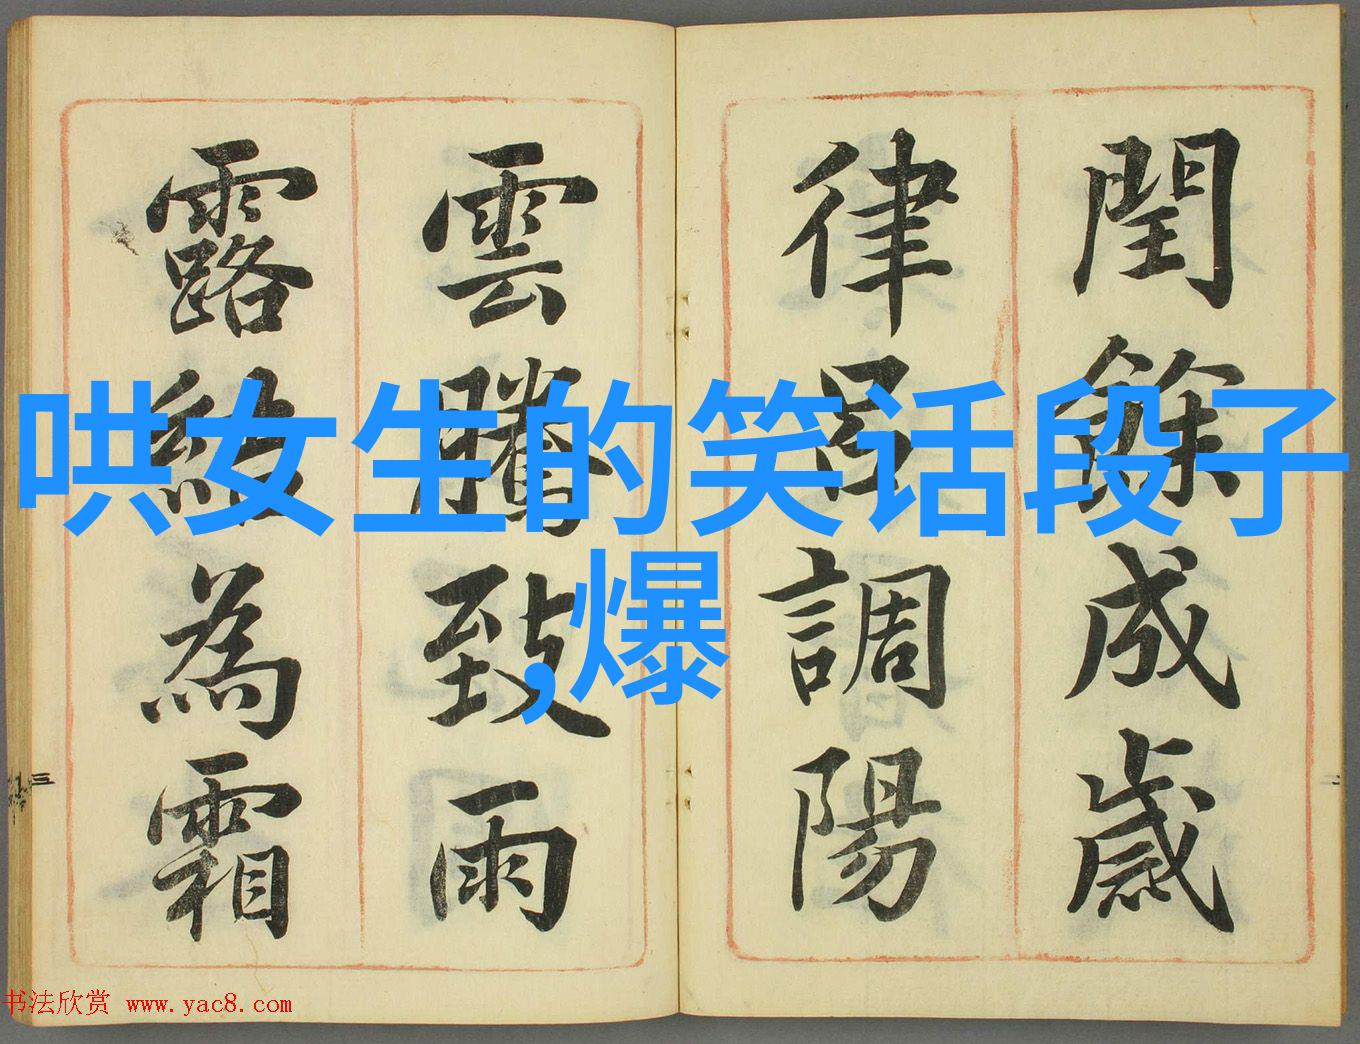 閏餘成歲
律呂調陽
雲騰致雨
露結為霜
哄女生的笑话段子
,爆
三
二
书法欣赏 www.yac8.com